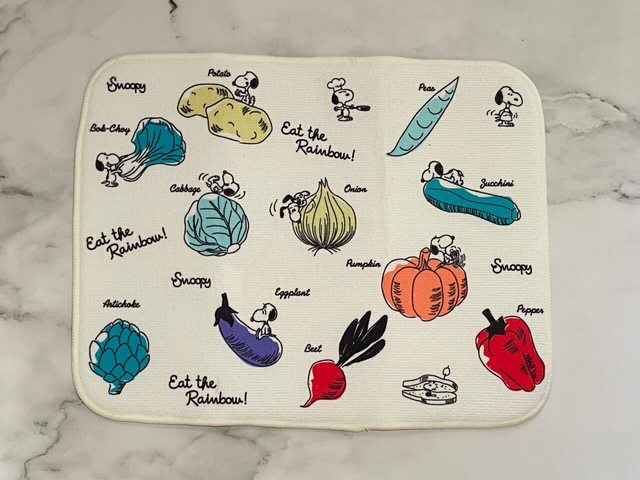 Snoopy
Potato
Peas
Bok-Choy
Eat the
Rainbow!
Cabbage
Onion
Zucchini
Eat the
Rainbow!
Pumpkin
Snoopy
Snoopy
Eggplant
Artichoke
Pepper
Beet
Eat the
Rainbow!